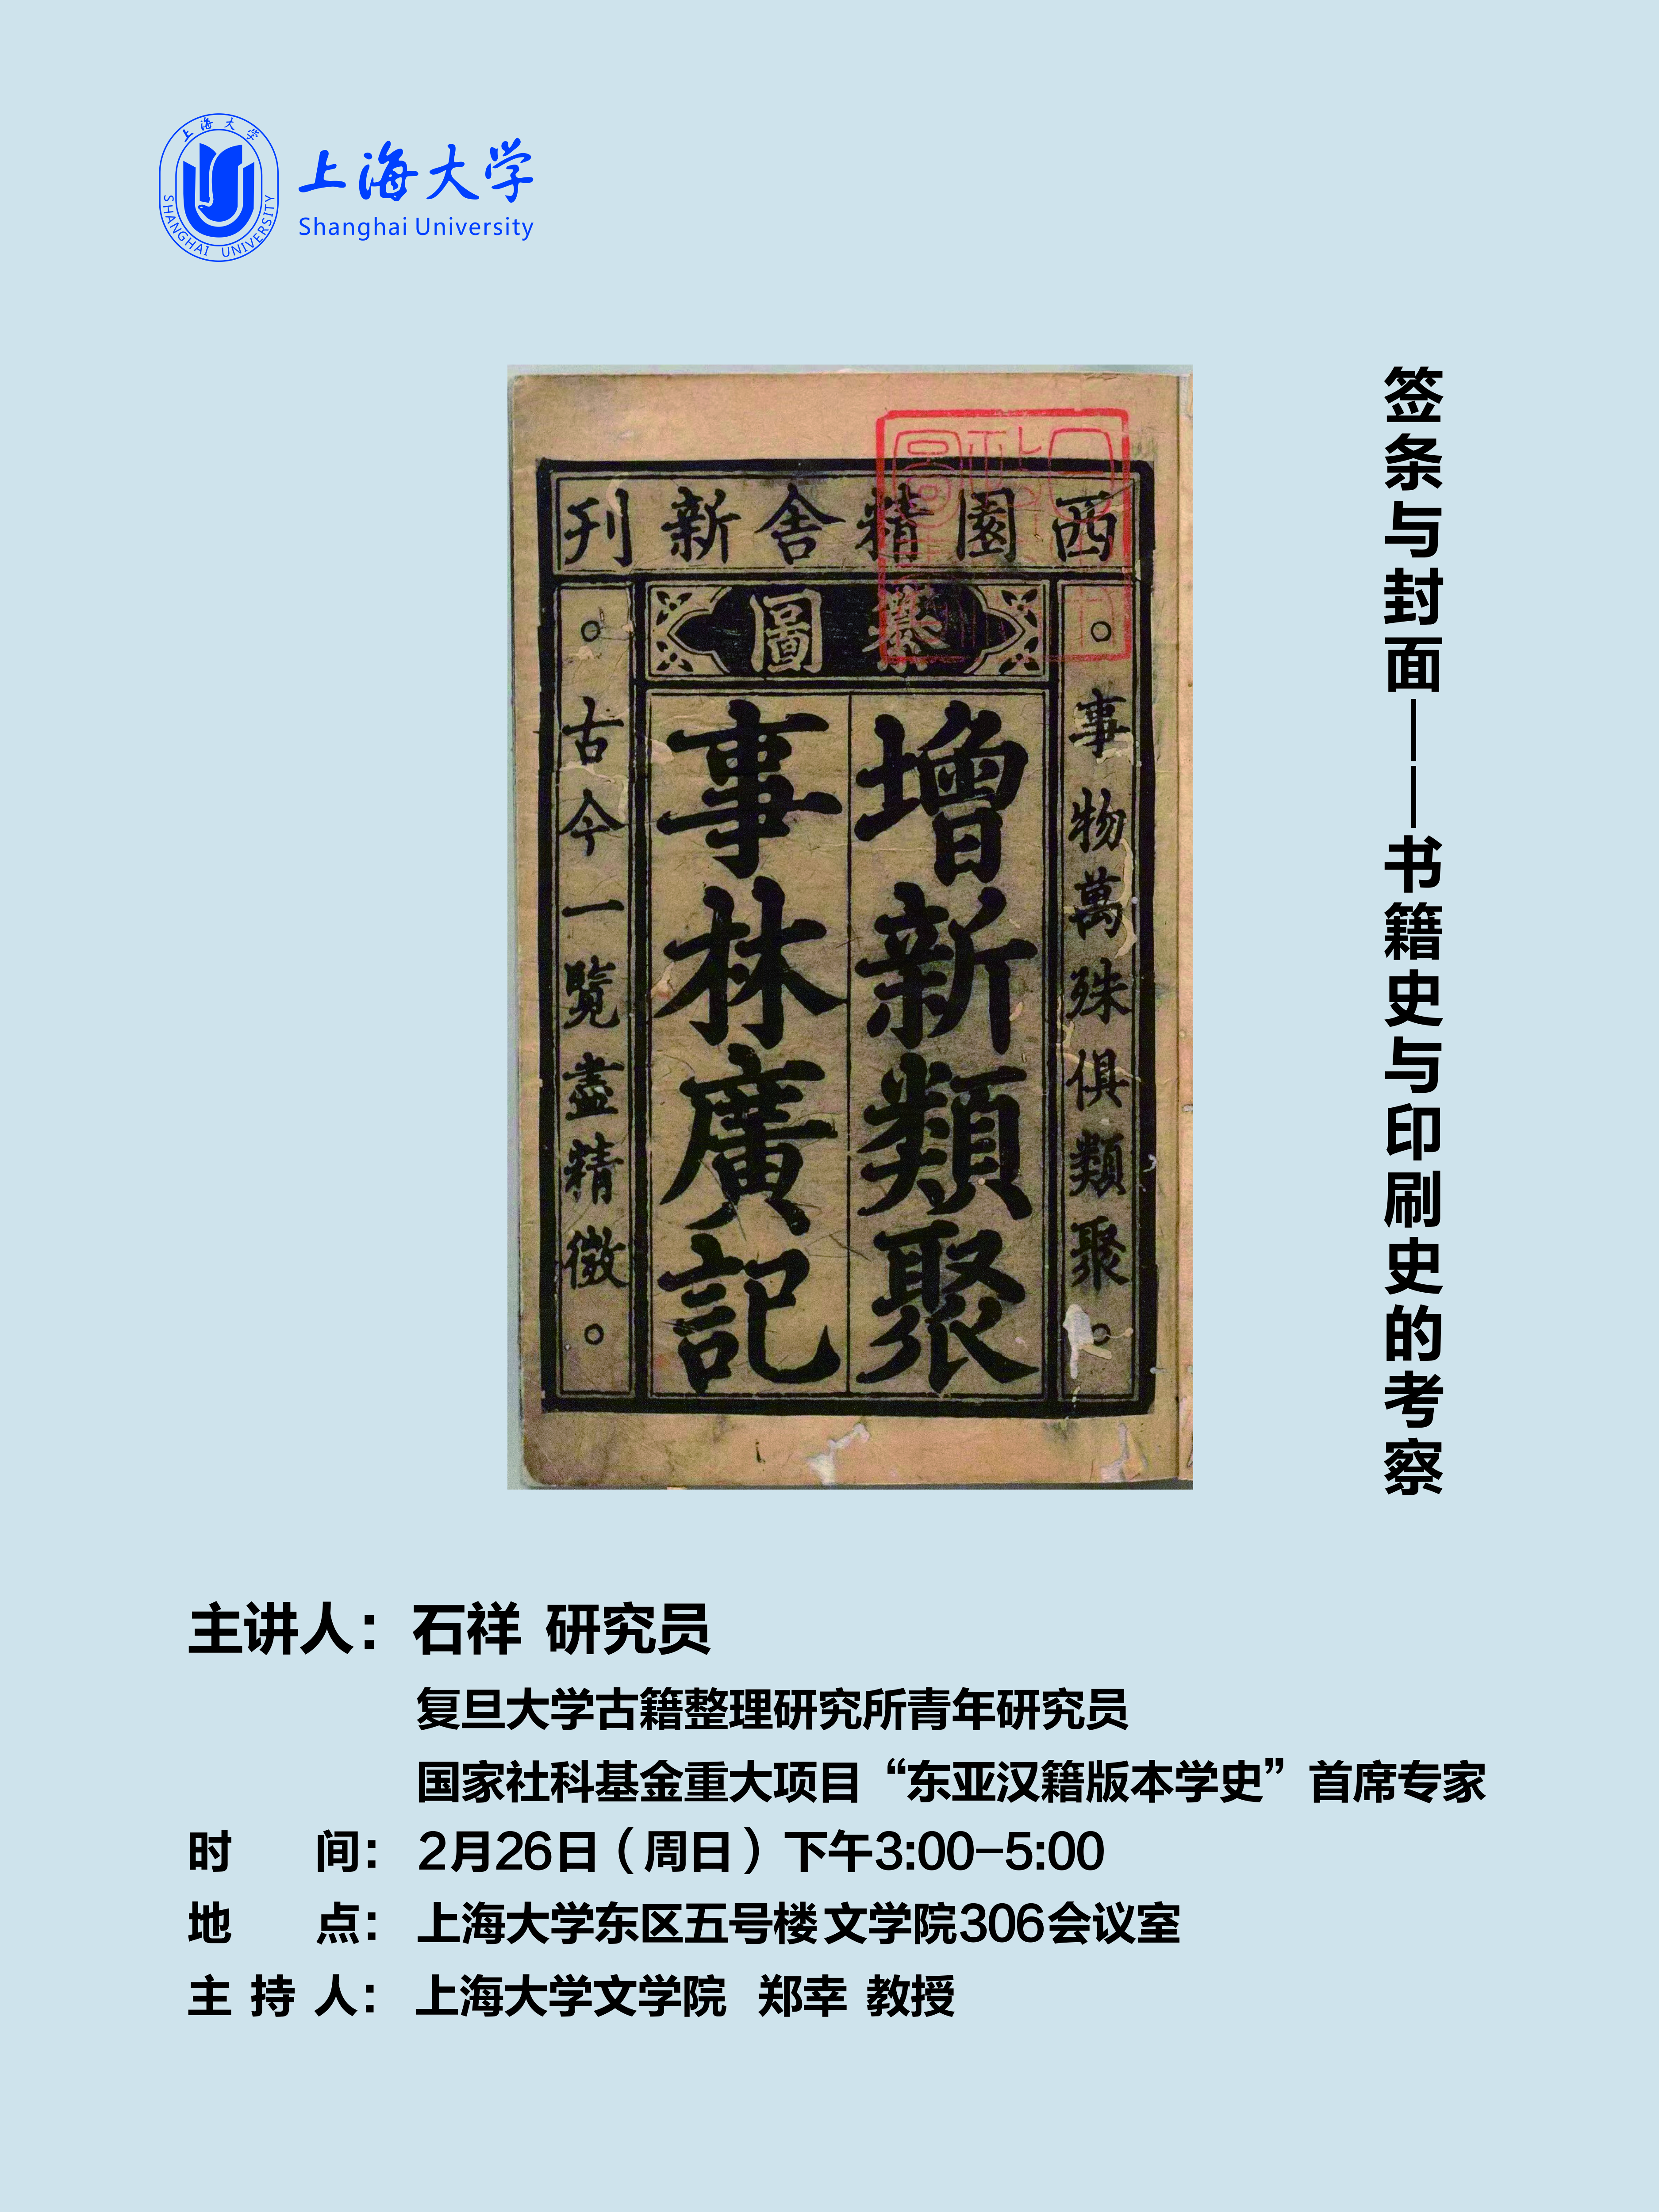 上海大学
SHANGHAI UNIVERSITY
上海大学
Shanghai University
签条与封面——书籍史与印刷史的考察
西園精舍新刊
纂圖
事物萬殊俱類聚
增新類聚
事林廣記
古今一覽盡精微
主讲人：石祥 研究员
复旦大学古籍整理研究所青年研究员
国家社科基金重大项目“东亚汉籍版本学史”首席专家
时 间：2月26日（周日）下午3:00-5:00
地 点：上海大学东区五号楼 文学院306会议室
主 持 人：上海大学文学院 郑幸 教授